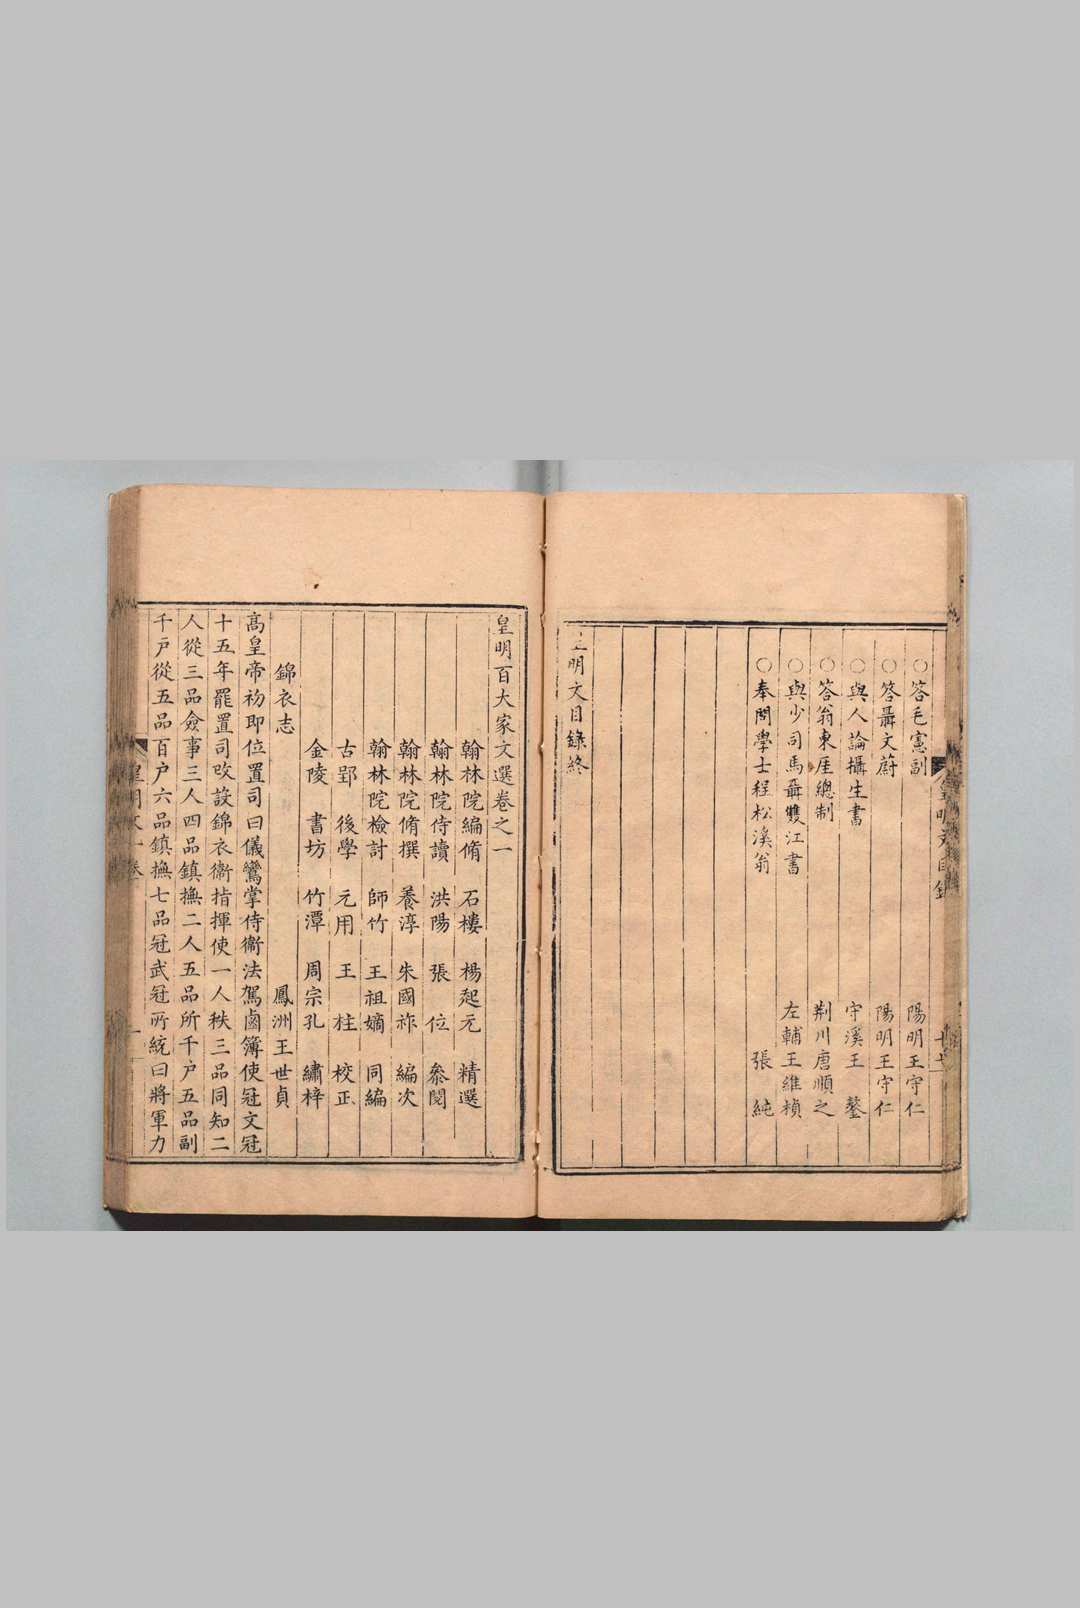 ○答毛憲副 陽明王守仁
○答聶文蔚 陽明王守仁
○與人論攝生書 守溪王鏊
○答翁東厓總制 荆川唐順之
○與少司馬聶雙江書 左輔王維楨
○奉問學士程松溪翁 張純
皇明文目錄終
皇明百大家文選卷之一
翰林院編脩 石樓 楊起元 精選
翰林院侍讀 洪陽 張位 叅閱
翰林院脩撰 養淳 朱國祚 編次
翰林院檢討 師竹 王祖嫡 同編
古郢 後學 元用 王柱 校正
金陵 書坊 竹潭 周宗孔 繡梓
錦衣志 鳳洲王世貞
髙皇帝初即位置司曰儀鸞掌侍衞法駕鹵簿使冠文冠
十五年罷置司改設錦衣衞指揮使一人秩三品同知二
人從三品僉事三人四品鎮撫二人五品所千戶五品副
千戶從五品百户六品鎮撫七品冠武冠所統曰將軍力